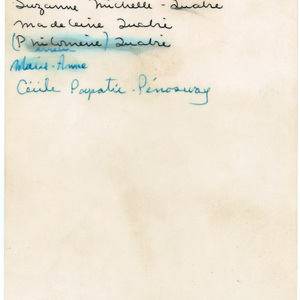 Suzanne Michelle - Quatre
Madeleine Quatre
(Philomène) Quatre
Marie-Anne
Cécile Papatie - Pénosway